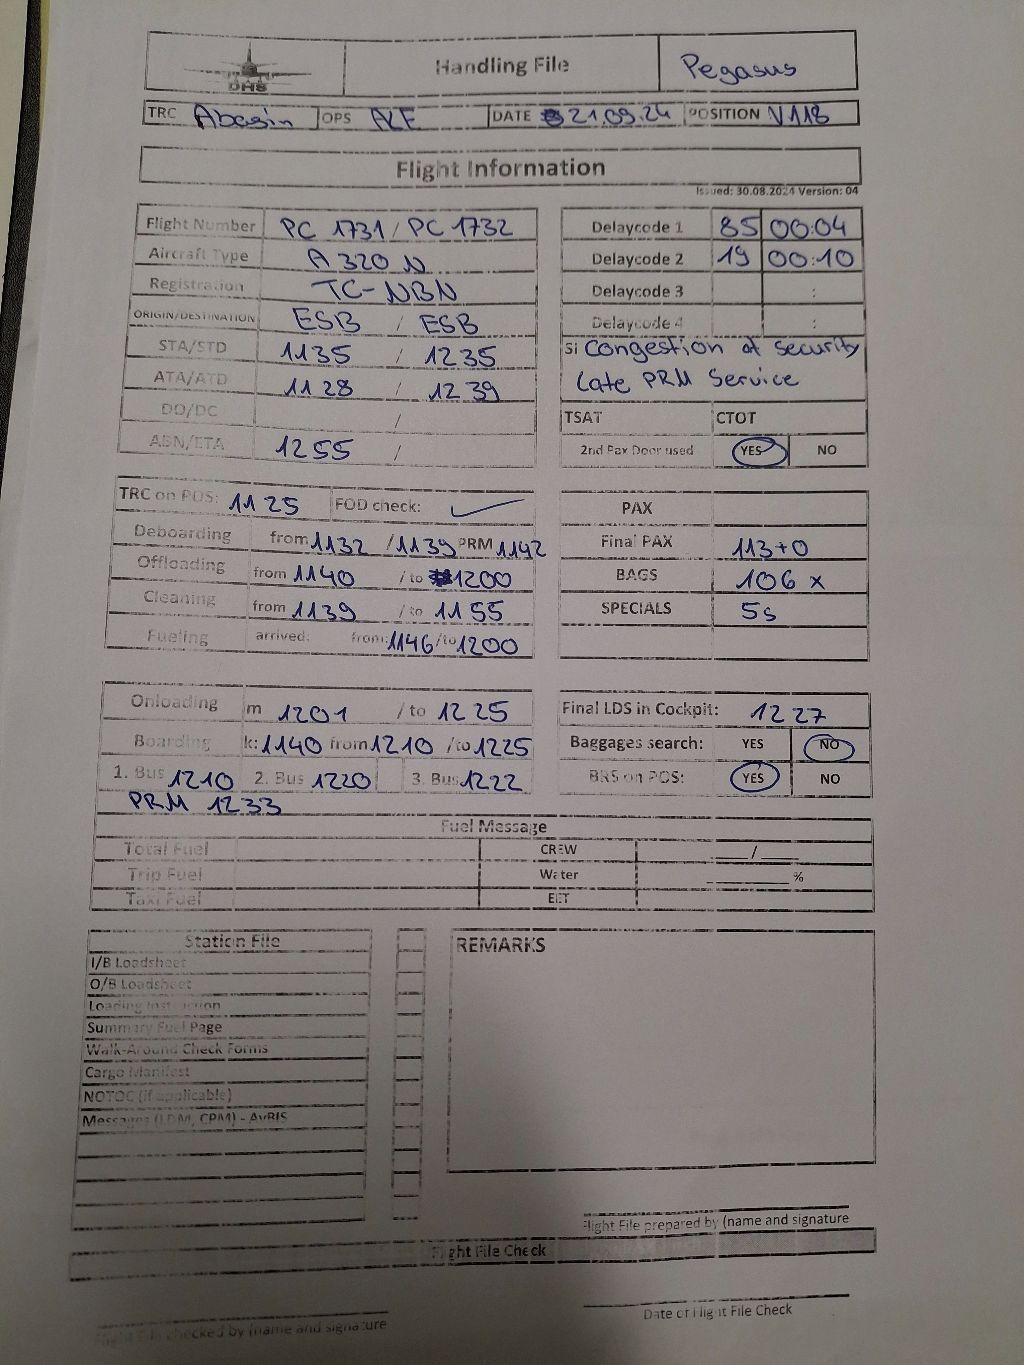 DHS
Handling File
Pegasus
TRC Abasin OPS ALE DATE 21.09.24 POSITION V118
Flight Information
Issued: 30.08.2024 Version: 04
Flight Number PC 1731 / PC 1732
Aircraft Type A 320 N
Registration TC-NBN
ORIGIN/DESTINATION ESB / ESB
STA/STD 1135 / 1235
ATA/ATD 1128 / 1239
DO/DC /
ABN/ETA 1255 /
Delaycode 1 85 00:04
Delaycode 2 19 00:10
Delaycode 3 :
Delaycode 4 :
SI Congestion at security
Late PRM Service
TSAT CTOT
2nd Pax Door used YES NO
TRC on POS: 1125 FOD check: ✓
Deboarding from 1132 / 1139 PRM 1142
Offloading from 1140 / to 1200
Cleaning from 1139 / to 1155
Fueling arrived: from: 1146 /to 1200
PAX
Final PAX 113+0
BAGS 106 x
SPECIALS 5s
Onloading m 1201 / to 1225
Boarding k: 1140 from 1210 /to 1225
1. Bus 1210 2. Bus 1220 3. Bus 1222
PRM 1233
Final LDS in Cockpit: 1227
Baggages search: YES NO
BRS on POS: YES NO
Fuel Message
Total Fuel CREW ____/____
Trip Fuel Water ________%
Taxi Fuel EET
Station File
I/B Loadsheet
O/B Loadsheet
Loading Instruction
Summary Fuel Page
Walk-Around Check Forms
Cargo Manifest
NOTOC (if applicable)
Messages (LDM, CPM) - AvBIS
REMARKS
Flight File prepared by (name and signature
Flight File Check
Flight File checked by (name and signature
Date of Flight File Check